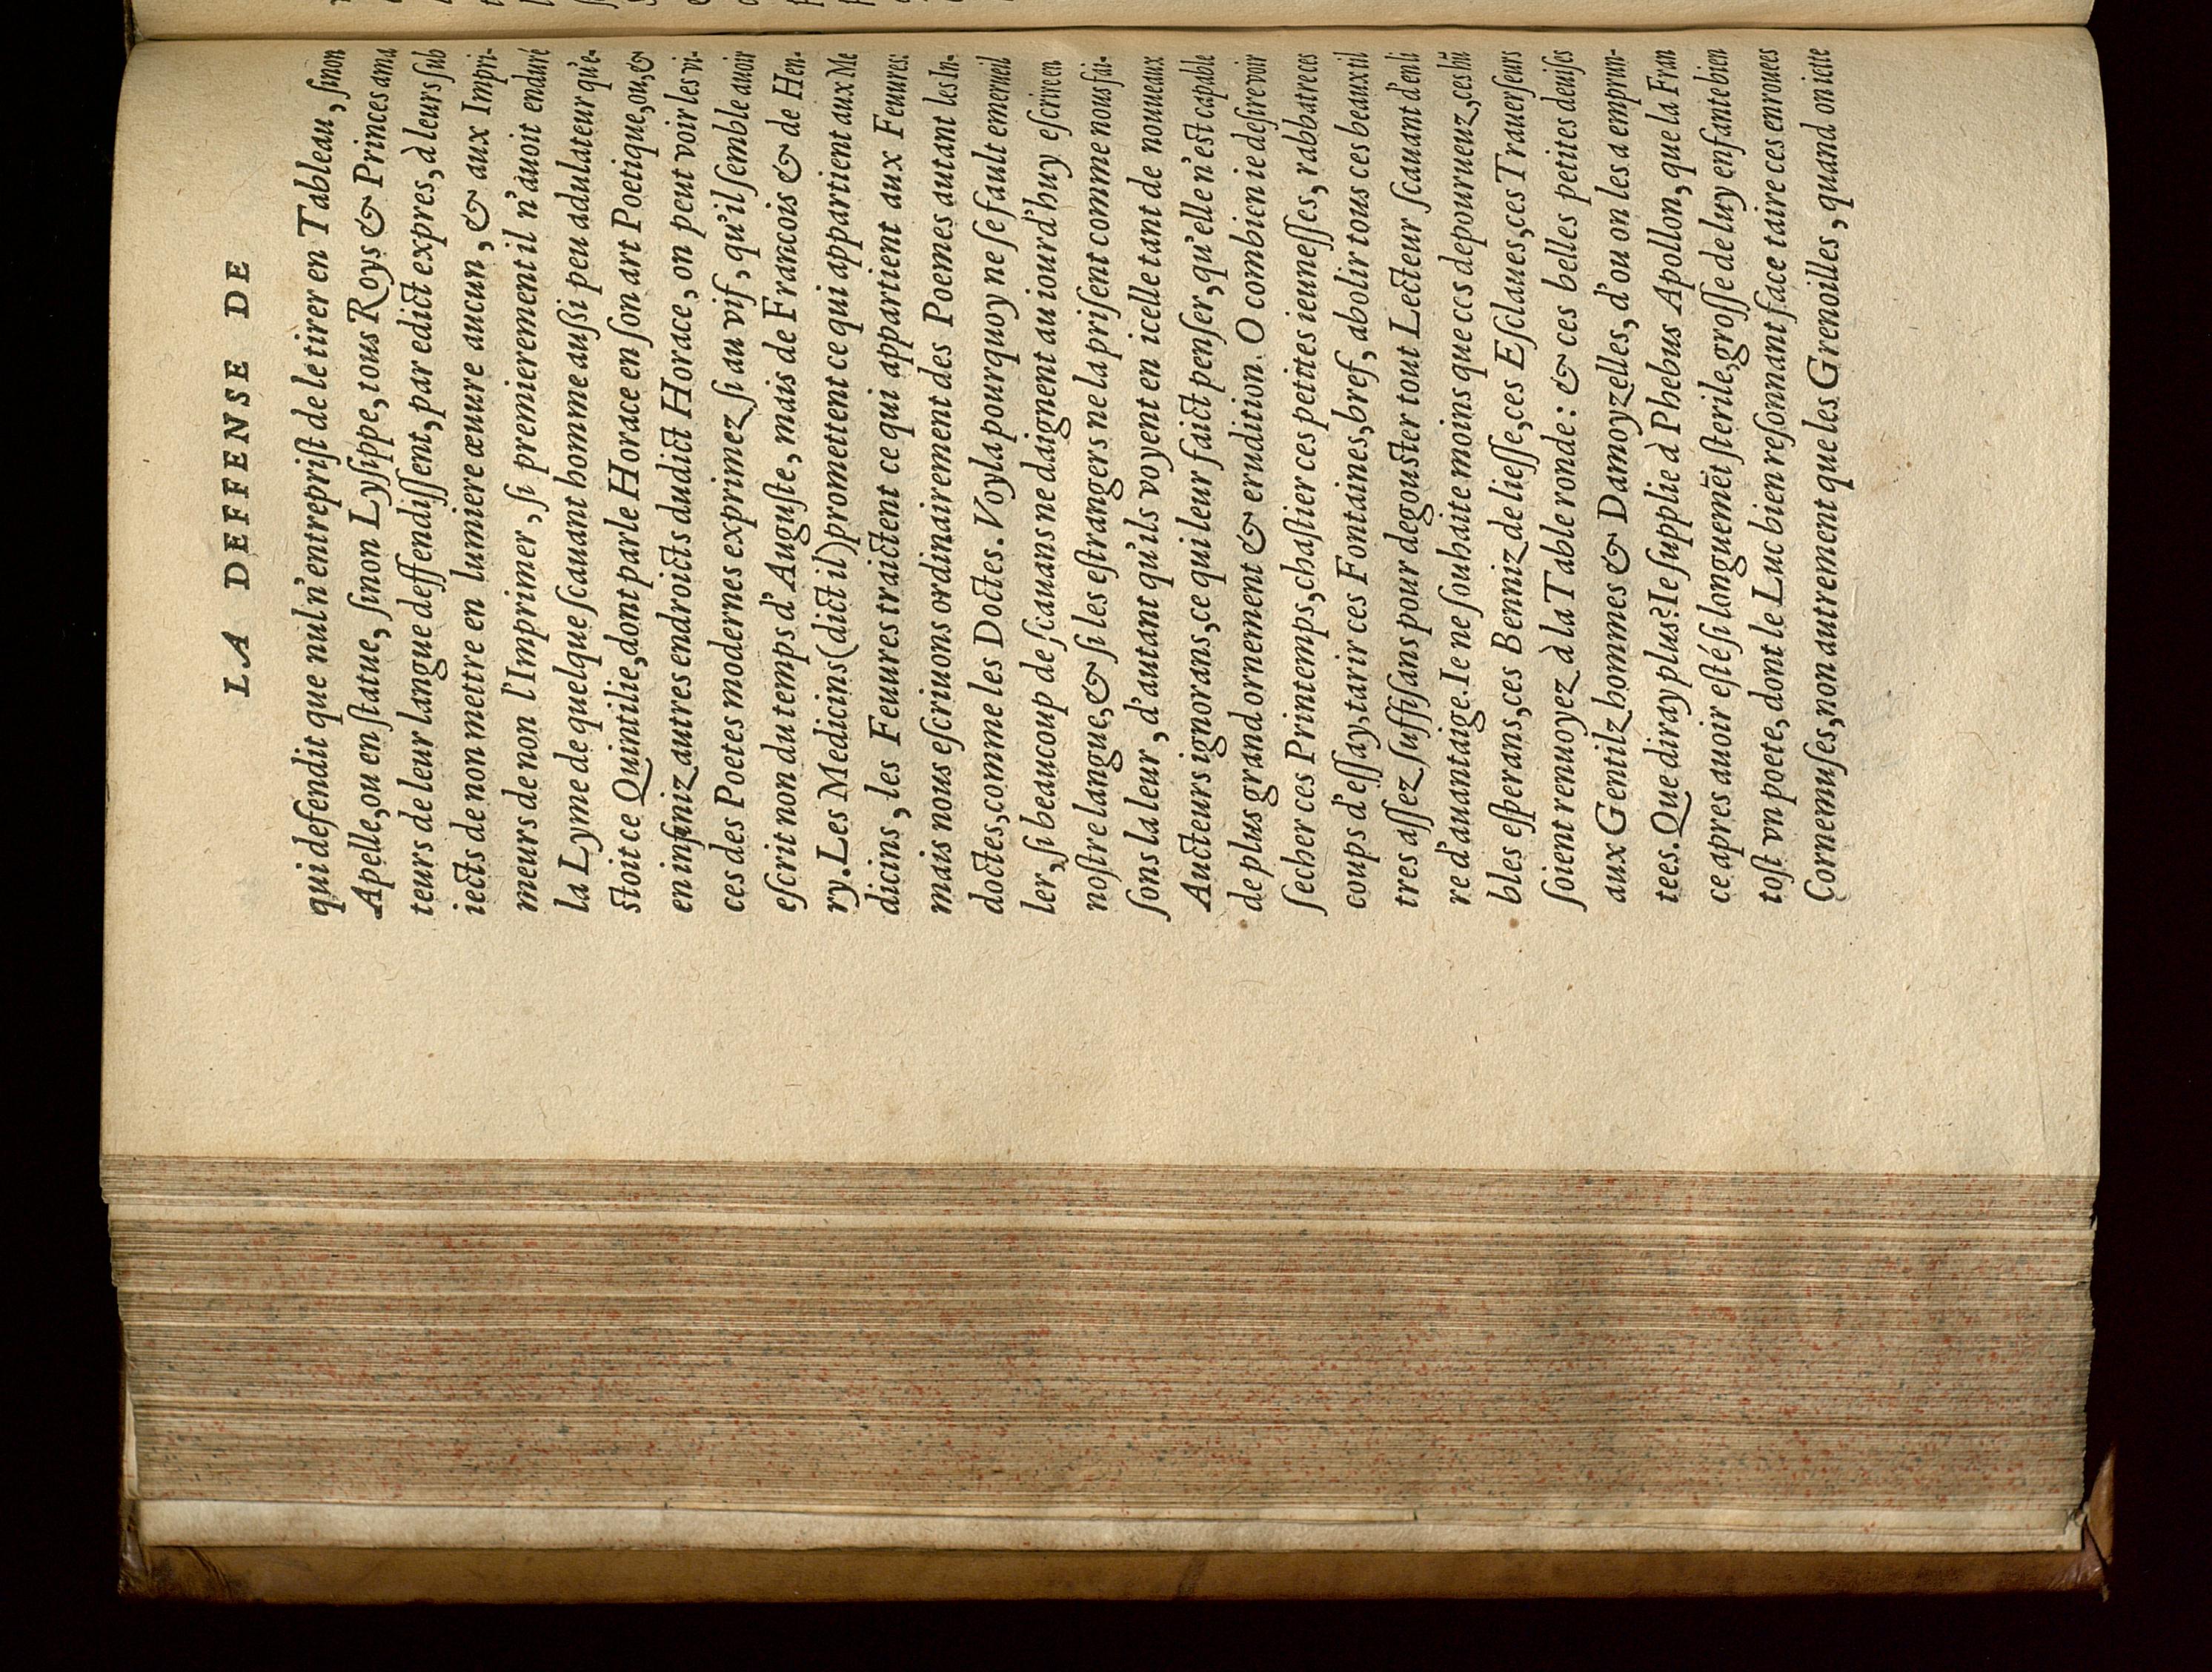 LA DEFFENSE DE
qui defendit que nul n'entreprist de le tirer en Tableau, sinon
Apelle, ou en statue, sinon Lysippe, tous Roys & Princes ama
teurs de leur langue deffendissent, par edict expres, à leurs sub
iects de non mettre en lumiere œuure aucun, & aux Impri-
meurs de non l'Imprimer, si premierement il n'auoit enduré
la Lyme de quelque scauant homme aussi peu adulateur qu'e-
stoit ce Quintilie, dont parle Horace en son art Poetique, ou, &
en infiniz autres endroicts dudict Horace, on peut voir les vi-
ces des Poetes modernes exprimez si au vif, qu'il semble auoir
escrit non du temps d'Auguste, mais de Francois & de Hen-
ry. Les Medicins (dict il) promettent ce qui appartient aux Me
dicins, les Feuures traictent ce qui appartient aux Feuures:
mais nous escriuons ordinairement des Poemes autant les In-
doctes, comme les Doctes. Voyla pourquoy ne se fault emerueil
ler, si beaucoup de scauans ne daignent au iourd'huy escrire en
nostre langue, & si les estrangers ne la prisent comme nous fai-
sons la leur, d'autant qu'ils voyent en icelle tant de nouueaux
Aucteurs ignorans, ce qui leur faict penser, qu'elle n'est capable
de plus grand ornement & erudition. O combien ie desire voir
secher ces Printemps, chastier ces petites ieunesses, rabbatre ces
coups d'essay, tarir ces Fontaines, bref, abolir tous ces beaux til
tres assez suffisans pour degouster tout Lecteur scauant d'en li
re d'auantaige. Ie ne souhaite moins que ces depourueuz, ces hū
bles esperans, ces Benniz de liesse, ces Esclaues, ces Trauerseurs
soient renuoyez à la Table ronde: & ces belles petites deuises
aux Gentilz hommes & Damoyzelles, d'ou on les a emprun-
tees. Que diray plus? Ie supplie à Phebus Apollon, que la Fran
ce apres auoir esté si longuemēt sterile, grosse de luy enfante bien
tost vn poete, dont le Luc bien resonnant face taire ces enrouees
Cornemuses, non autrement que les Grenoilles, quand on iette